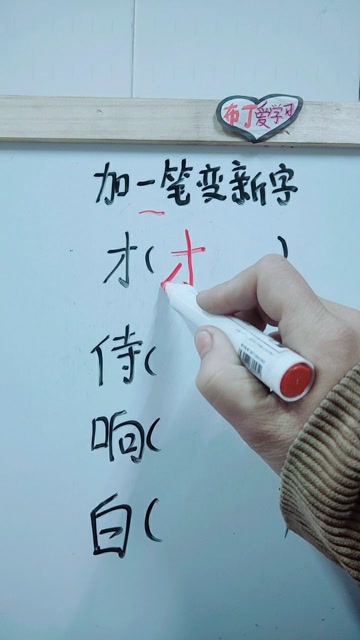 布丁爱学习
加一笔变新字
才(才)
侍(
响(
白(